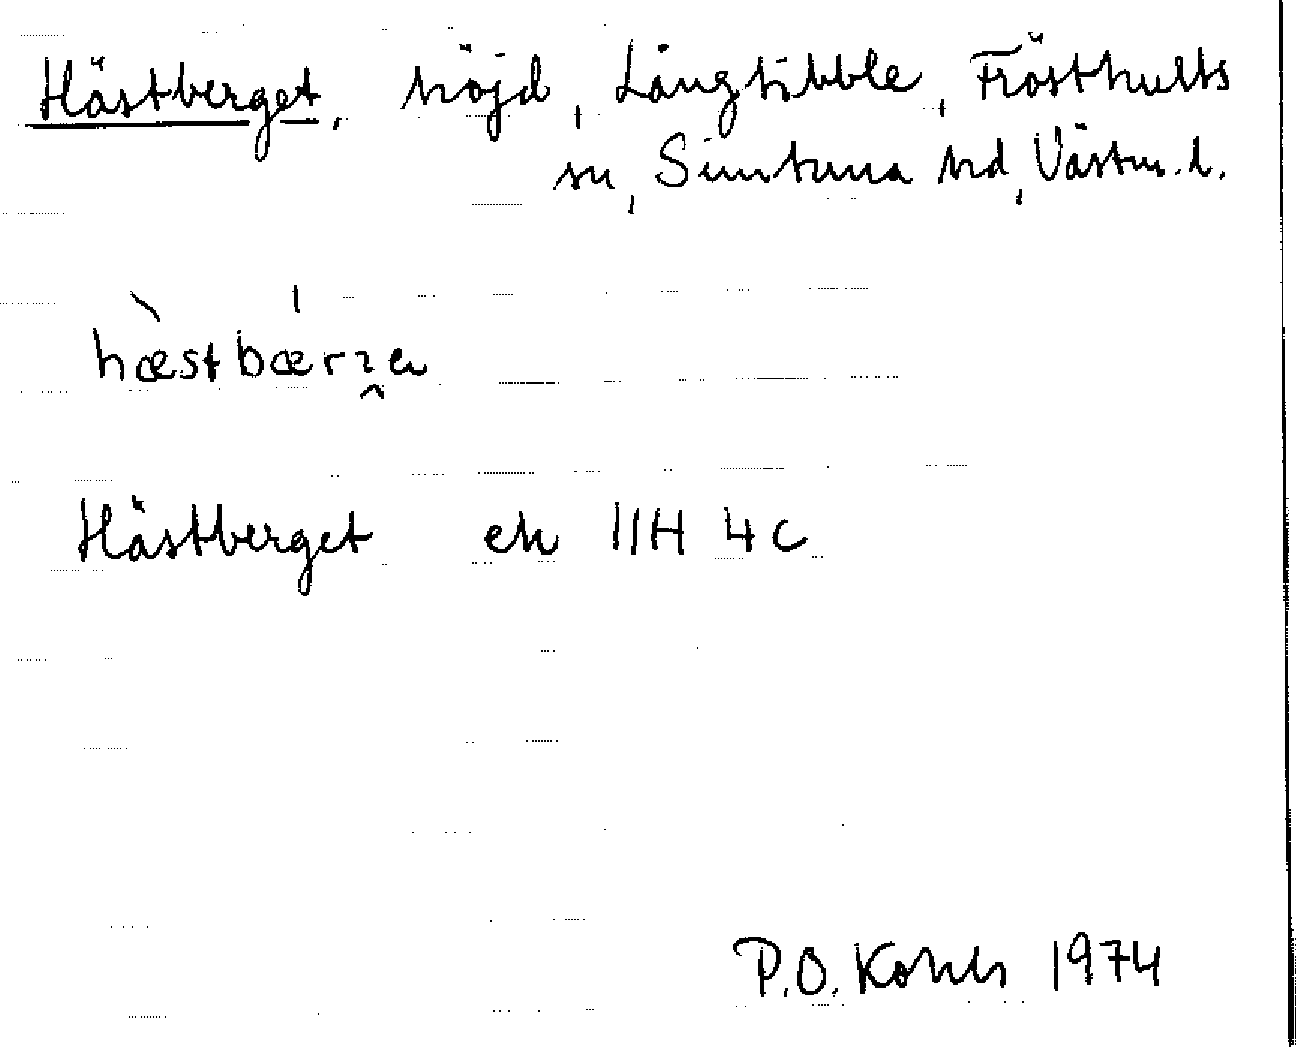 Hästberget, höjd, Långtibble, Frösthults
sn, Simtuna hd, Västm. l.
hæstbærʒe
Hästberget ek 11H 4c
P.O.
1974